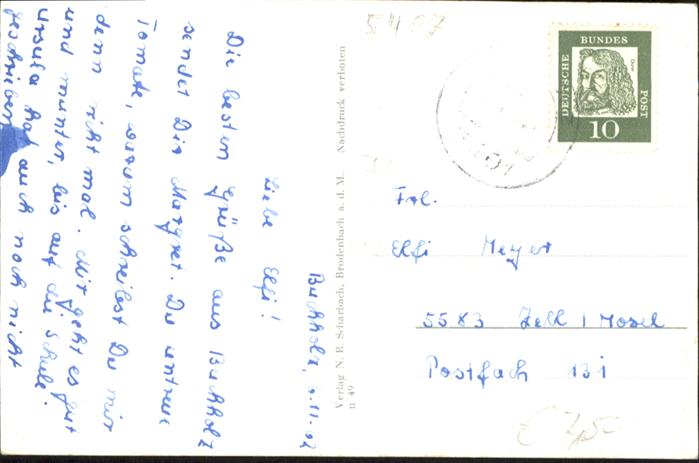 Buchholz, 6.11.62
Liebe Elfi!
Die besten Grüße aus Buchholz
sendet Dir Margret. Du untreue
Tomate, warum schreibst Du mir
denn nicht mal. Mir geht es gut
und munter, bis auf die Schule.
Ursula hat auch noch nicht
geschrieben
Verlag N. R. Scharbach, Brodenbach a. d. M. Nachdruck verboten
n 49
5407
DEUTSCHE BUNDES POST
Dürer
10
Frl.
Elfi Meyer
5583 Zell / Mosel
Postfach 131
€ 7,50